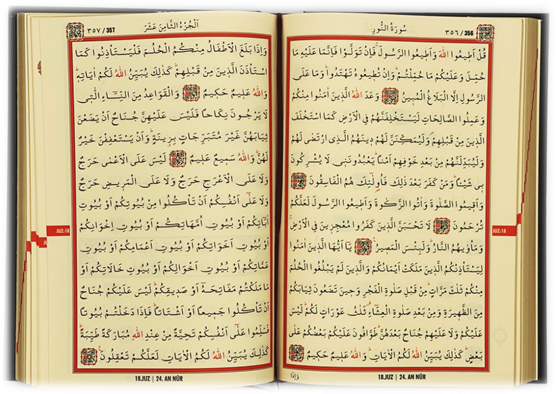 ٣٥٦ / 356 سُورَةُ النُّورِ
قُلْ اَطِيعُوا اللّٰهَ وَاَطِيعُوا الرَّسُولَ فَاِنْ تَوَلَّوْا فَاِنَّمَا عَلَيْهِ مَا
حُمِّلَ وَعَلَيْكُمْ مَا حُمِّلْتُمْ وَاِنْ تُطِيعُوهُ تَهْتَدُوا وَمَا عَلَى
الرَّسُولِ اِلَّا الْبَلَاغُ الْمُبِينُ وَعَدَ اللّٰهُ الَّذِينَ اٰمَنُوا مِنْكُمْ
وَعَمِلُوا الصَّالِحَاتِ لَيَسْتَخْلِفَنَّهُمْ فِي الْاَرْضِ كَمَا اسْتَخْلَفَ
الَّذِينَ مِنْ قَبْلِهِمْ وَلَيُمَكِّنَنَّ لَهُمْ دِينَهُمُ الَّذِي ارْتَضٰى لَهُمْ
وَلَيُبَدِّلَنَّهُمْ مِنْ بَعْدِ خَوْفِهِمْ اَمْنًا يَعْبُدُونَنِي لَا يُشْرِكُونَ
بِي شَيْئًا وَمَنْ كَفَرَ بَعْدَ ذٰلِكَ فَاُولٰئِكَ هُمُ الْفَاسِقُونَ
وَاَقِيمُوا الصَّلٰوةَ وَاٰتُوا الزَّكٰوةَ وَاَطِيعُوا الرَّسُولَ لَعَلَّكُمْ
تُرْحَمُونَ لَا تَحْسَبَنَّ الَّذِينَ كَفَرُوا مُعْجِزِينَ فِي الْاَرْضِ
وَمَأْوٰيهُمُ النَّارُ وَلَبِئْسَ الْمَصِيرُ يَا اَيُّهَا الَّذِينَ اٰمَنُوا
لِيَسْتَأْذِنْكُمُ الَّذِينَ مَلَكَتْ اَيْمَانُكُمْ وَالَّذِينَ لَمْ يَبْلُغُوا الْحُلُمَ
مِنْكُمْ ثَلٰثَ مَرَّاتٍ مِنْ قَبْلِ صَلٰوةِ الْفَجْرِ وَحِينَ تَضَعُونَ ثِيَابَكُمْ
مِنَ الظَّهِيرَةِ وَمِنْ بَعْدِ صَلٰوةِ الْعِشَاءِ ثَلٰثُ عَوْرَاتٍ لَكُمْ لَيْسَ
عَلَيْكُمْ وَلَا عَلَيْهِمْ جُنَاحٌ بَعْدَهُنَّ طَوَّافُونَ عَلَيْكُمْ بَعْضُكُمْ عَلٰى
بَعْضٍ كَذٰلِكَ يُبَيِّنُ اللّٰهُ لَكُمُ الْاٰيَاتِ وَاللّٰهُ عَلِيمٌ حَكِيمٌ
18.JUZ | 24. AN NÛR
JUZ.18
اَلْجُزْءُ الثَّامِنَ عَشَرَ ٣٥٧ / 357
وَاِذَا بَلَغَ الْاَطْفَالُ مِنْكُمُ الْحُلُمَ فَلْيَسْتَأْذِنُوا كَمَا
اسْتَأْذَنَ الَّذِينَ مِنْ قَبْلِهِمْ كَذٰلِكَ يُبَيِّنُ اللّٰهُ لَكُمْ اٰيَاتِهِ
وَاللّٰهُ عَلِيمٌ حَكِيمٌ وَالْقَوَاعِدُ مِنَ النِّسَاءِ الّٰتِي
لَا يَرْجُونَ نِكَاحًا فَلَيْسَ عَلَيْهِنَّ جُنَاحٌ اَنْ يَضَعْنَ
ثِيَابَهُنَّ غَيْرَ مُتَبَرِّجَاتٍ بِزِينَةٍ وَاَنْ يَسْتَعْفِفْنَ خَيْرٌ
لَهُنَّ وَاللّٰهُ سَمِيعٌ عَلِيمٌ لَيْسَ عَلَى الْاَعْمٰى حَرَجٌ
وَلَا عَلَى الْاَعْرَجِ حَرَجٌ وَلَا عَلَى الْمَرِيضِ حَرَجٌ
وَلَا عَلٰى اَنْفُسِكُمْ اَنْ تَأْكُلُوا مِنْ بُيُوتِكُمْ اَوْ بُيُوتِ
اٰبَائِكُمْ اَوْ بُيُوتِ اُمَّهَاتِكُمْ اَوْ بُيُوتِ اِخْوَانِكُمْ
اَوْ بُيُوتِ اَخَوَاتِكُمْ اَوْ بُيُوتِ اَعْمَامِكُمْ اَوْ بُيُوتِ
عَمَّاتِكُمْ اَوْ بُيُوتِ اَخْوَالِكُمْ اَوْ بُيُوتِ خَالَاتِكُمْ اَوْ
مَا مَلَكْتُمْ مَفَاتِحَهُ اَوْ صَدِيقِكُمْ لَيْسَ عَلَيْكُمْ جُنَاحٌ
اَنْ تَأْكُلُوا جَمِيعًا اَوْ اَشْتَاتًا فَاِذَا دَخَلْتُمْ بُيُوتًا
فَسَلِّمُوا عَلٰى اَنْفُسِكُمْ تَحِيَّةً مِنْ عِنْدِ اللّٰهِ مُبَارَكَةً طَيِّبَةً
كَذٰلِكَ يُبَيِّنُ اللّٰهُ لَكُمُ الْاٰيَاتِ لَعَلَّكُمْ تَعْقِلُونَ
18.JUZ | 24. AN NÛR